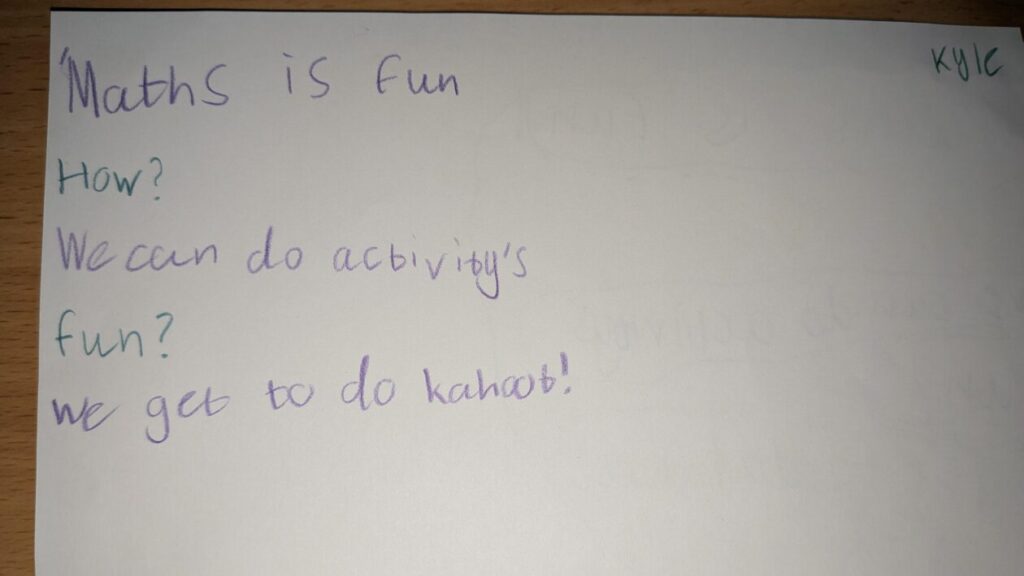 Maths is fun
Kyle
How?
We can do activity's
fun?
we get to do kahoot!